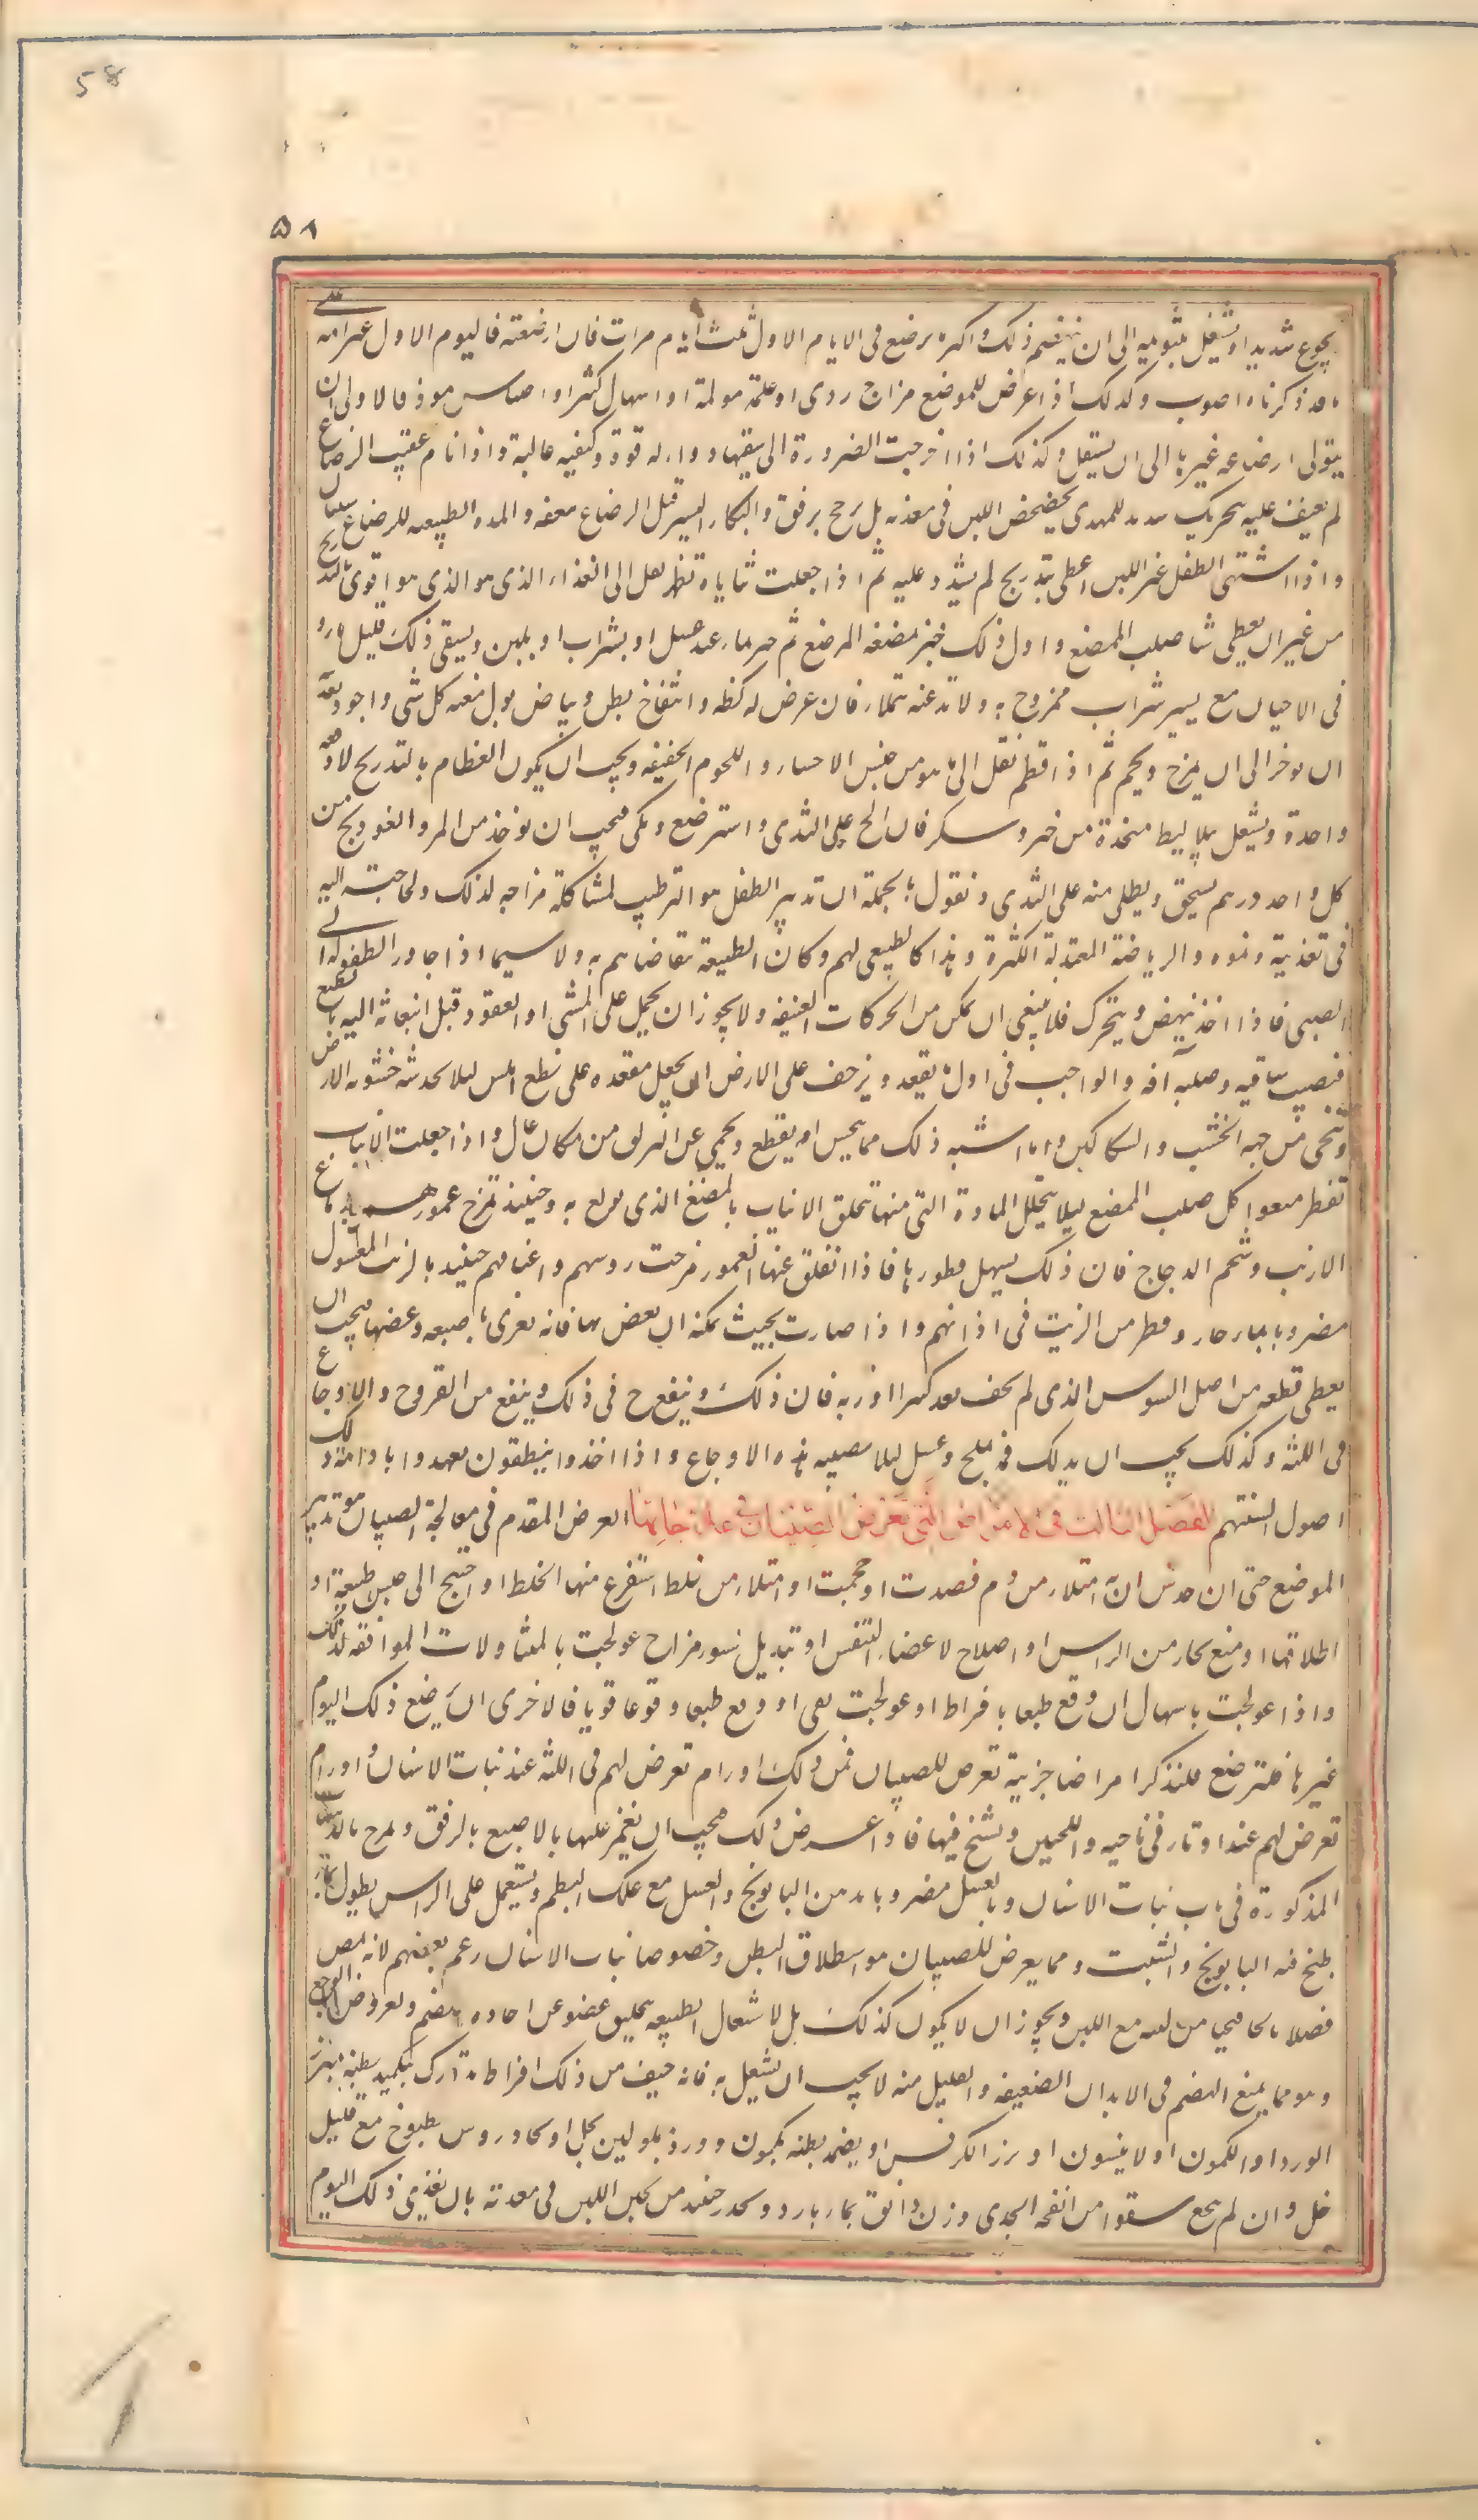 58
۵۸
بجوع شديد او يشتغل بتنويمه الى ان ينهضم ذلك واكثره يرضع فى الايام الاول ثلث ايام مرات فان ارضعته فى اليوم الاول غير امه على
ما قد ذكرناه اصوب وكذلك اذا عرض للموضع مزاج ردى او علة مولمة او اسهال كثير او احتباس موذ فالاولى ان
يتولى ارضاعه غيرها الى ان يستقل وكذلك اذا اخرجت الضرورة الى سقيها دواء له قوة وكيفيه غالبة واذا نام عقيب الرضاع
لم يعنف عليه بتحريك شديد للمهدى يخضخض اللبن فى معدته بل يرجح برفق والبكاء اليسير قبل الرضاع ينفعه والمده الطبيعه للرضاع سنتان
واذا اشتهى الطفل غير اللبن اعطى بتدريج لم يشدد عليه ثم اذا جعلت ثناياه تظهر نقل الى الغذاء الذى هو الذى هو اقوى بالتدريج
من غير ان يعطى شيا صلب الممضع واول ذلك خبز يمضغه المرضع ثم خبز بماء عسل او بشراب او بلبن ويسقى ذلك قليل ماء و
فى الاحيان مع يسير شراب ممزوج به ولا تدعنه يتملاء فان عرض له كظه وانتفاخ بطن وبياض بول منعته كل شى واجود تغذيه
ان يوخر الى ان يمرخ ويحمم ثم اذا فطم نقل الى ما هو من جنس الاحساء واللحوم الخفيفه ويجب ان يكون الفطام بالتدريج لا دفعه
واحدة ويشغل ببلاليط متخذة من خبز وسكر فان الح على الثدى واسترضع وبكى فيجب ان يوخذ من المر والفودنج من
كل واحد درهم يسحق ويطلى منه على الثدى ونقول بالجملة ان تدبير الطفل هو الترطيب لمشاكلة مزاجه لذلك ولحاجته اليه
فى تغذيته ونموه والرياضة المعتدلة الكثيرة وهذا كالطبيعى لهم وكان الطبيعة تتقاضاهم به ولا سيما اذا جاوزا الطفوله الى
الصبى فاذا اخذ ينهض ويتحرك فلا ينبغى ان يمكن من الحركات العنيفه ولا يجوز ان يحمل على المشى او القعود قبل انبعاثه اليه بالطبع
فيصيب ساقيه وصلبه آفه والواجب فى اول ما يقعد ويزحف على الارض ان يجعل مقعده على نطع املس ليلا يخدشه خشونه الارض
وينحى من جهه الخشب والسكاكين وما اشبه ذلك مما ينخس او يقطع ويحمى عن التزلق من مكان عال واذا جعلت الانياب
تفطر منعوا كل صلب الممضع ليلا يتحلل المادة التى منها تتخلق الانياب بالمضغ الذى يولع به وحينئذ تمرخ عمورهم بدماغ
الارنب وشحم الدجاج فان ذلك يسهل فطورها فاذا انغلق عنها العمور مرخت روسهم واعناقهم حينئذ بالزيت المغسول
مضروبا بماء حار وقطر من الزيت فى اذانهم واذا صارت بحيث يمكنه ان يعض بها فانه يغرى باصبعه وعضها فيجب ان
يعطى قطعه من اصل السوس الذى لم يجف بعد كثيرا او ربه فان ذلك ينفع ح فى ذلك وينفع من القروح والاوجاع
فى اللثه وكذلك يجب ان يدلك فمه بملح وعسل ليلا تصيبه هذه الاوجاع واذا اخذوا ينطقون تعهدوا بادامة دلك
اصول السنتهم الفصل الثالث فى الامراض التى تعرض للصبيان فى علاجاتها الغرض المقدم فى معالجة الصبيان هو تدبير
الموضع حتى ان حدس ان به امتلاء من دم فصدت او حجمت او امتلاء من خلط استفرغ منها الخلط او احتيج الى حبس طبيعة او
اطلاقها او منع بخار من الراس او اصلاح لاعضاء التنفس او تبديل سوء مزاج عولجت بالمتناولات الموافقه لذلك
واذا عولجت باسهال او وقع طبعا بافراط او عولجت بقى او وقع طبعا وقوعا قويا فالاحرى ان يرضع ذلك اليوم
غيرها فلترضع فلنذكر امراضا جزيية تعرض للصبيان فمن ذلك اورام تعرض لهم فى اللثه عند نبات الاسنان واورام
تعرض لهم عند اوتار فى ناحيه واللحيين وتشنج فيها فاذا عرض ذلك فيجب ان يغمز عليها بالاصبع بالرفق ويمرخ بالدهنيات
المذكورة فى باب نبات الاسنان وبالعسل مضروبا بدهن البابونج والعسل مع علك البطم ويستعمل على الراس نطول بماء قد
طبخ فيه البابونج والشبت ومما يعرض للصبيان هو استطلاق البطن وخصوصا نبات الاسنان زعم بعضهم لانه يمص
فضلا مالحا قيحيا من لثته مع اللبن ويجوز ان لا يكون كذلك بل لاشتغال الطبيعه بتخليق عضو عن اجاده الهضم ولعروض الوجع
وهو مما يمنع الهضم فى الابدان الضعيفه والقليل منه لا يجب ان يشتغل به فانه خيف من ذلك افراط تدارك بتكميد بطنه ببزر
الورد او الكمون او لانيسون او بزر الكرفس او يضمد بطنه بكمون وورد مبلولين بخل او بجاورس مطبوخ مع قليل
خل وان لم ينجع سقوا من انفحة الجدى وزن دانق بماء بارد ويحذر حينئذ من تجبن اللبن فى معدته بان يغذى ذلك اليوم